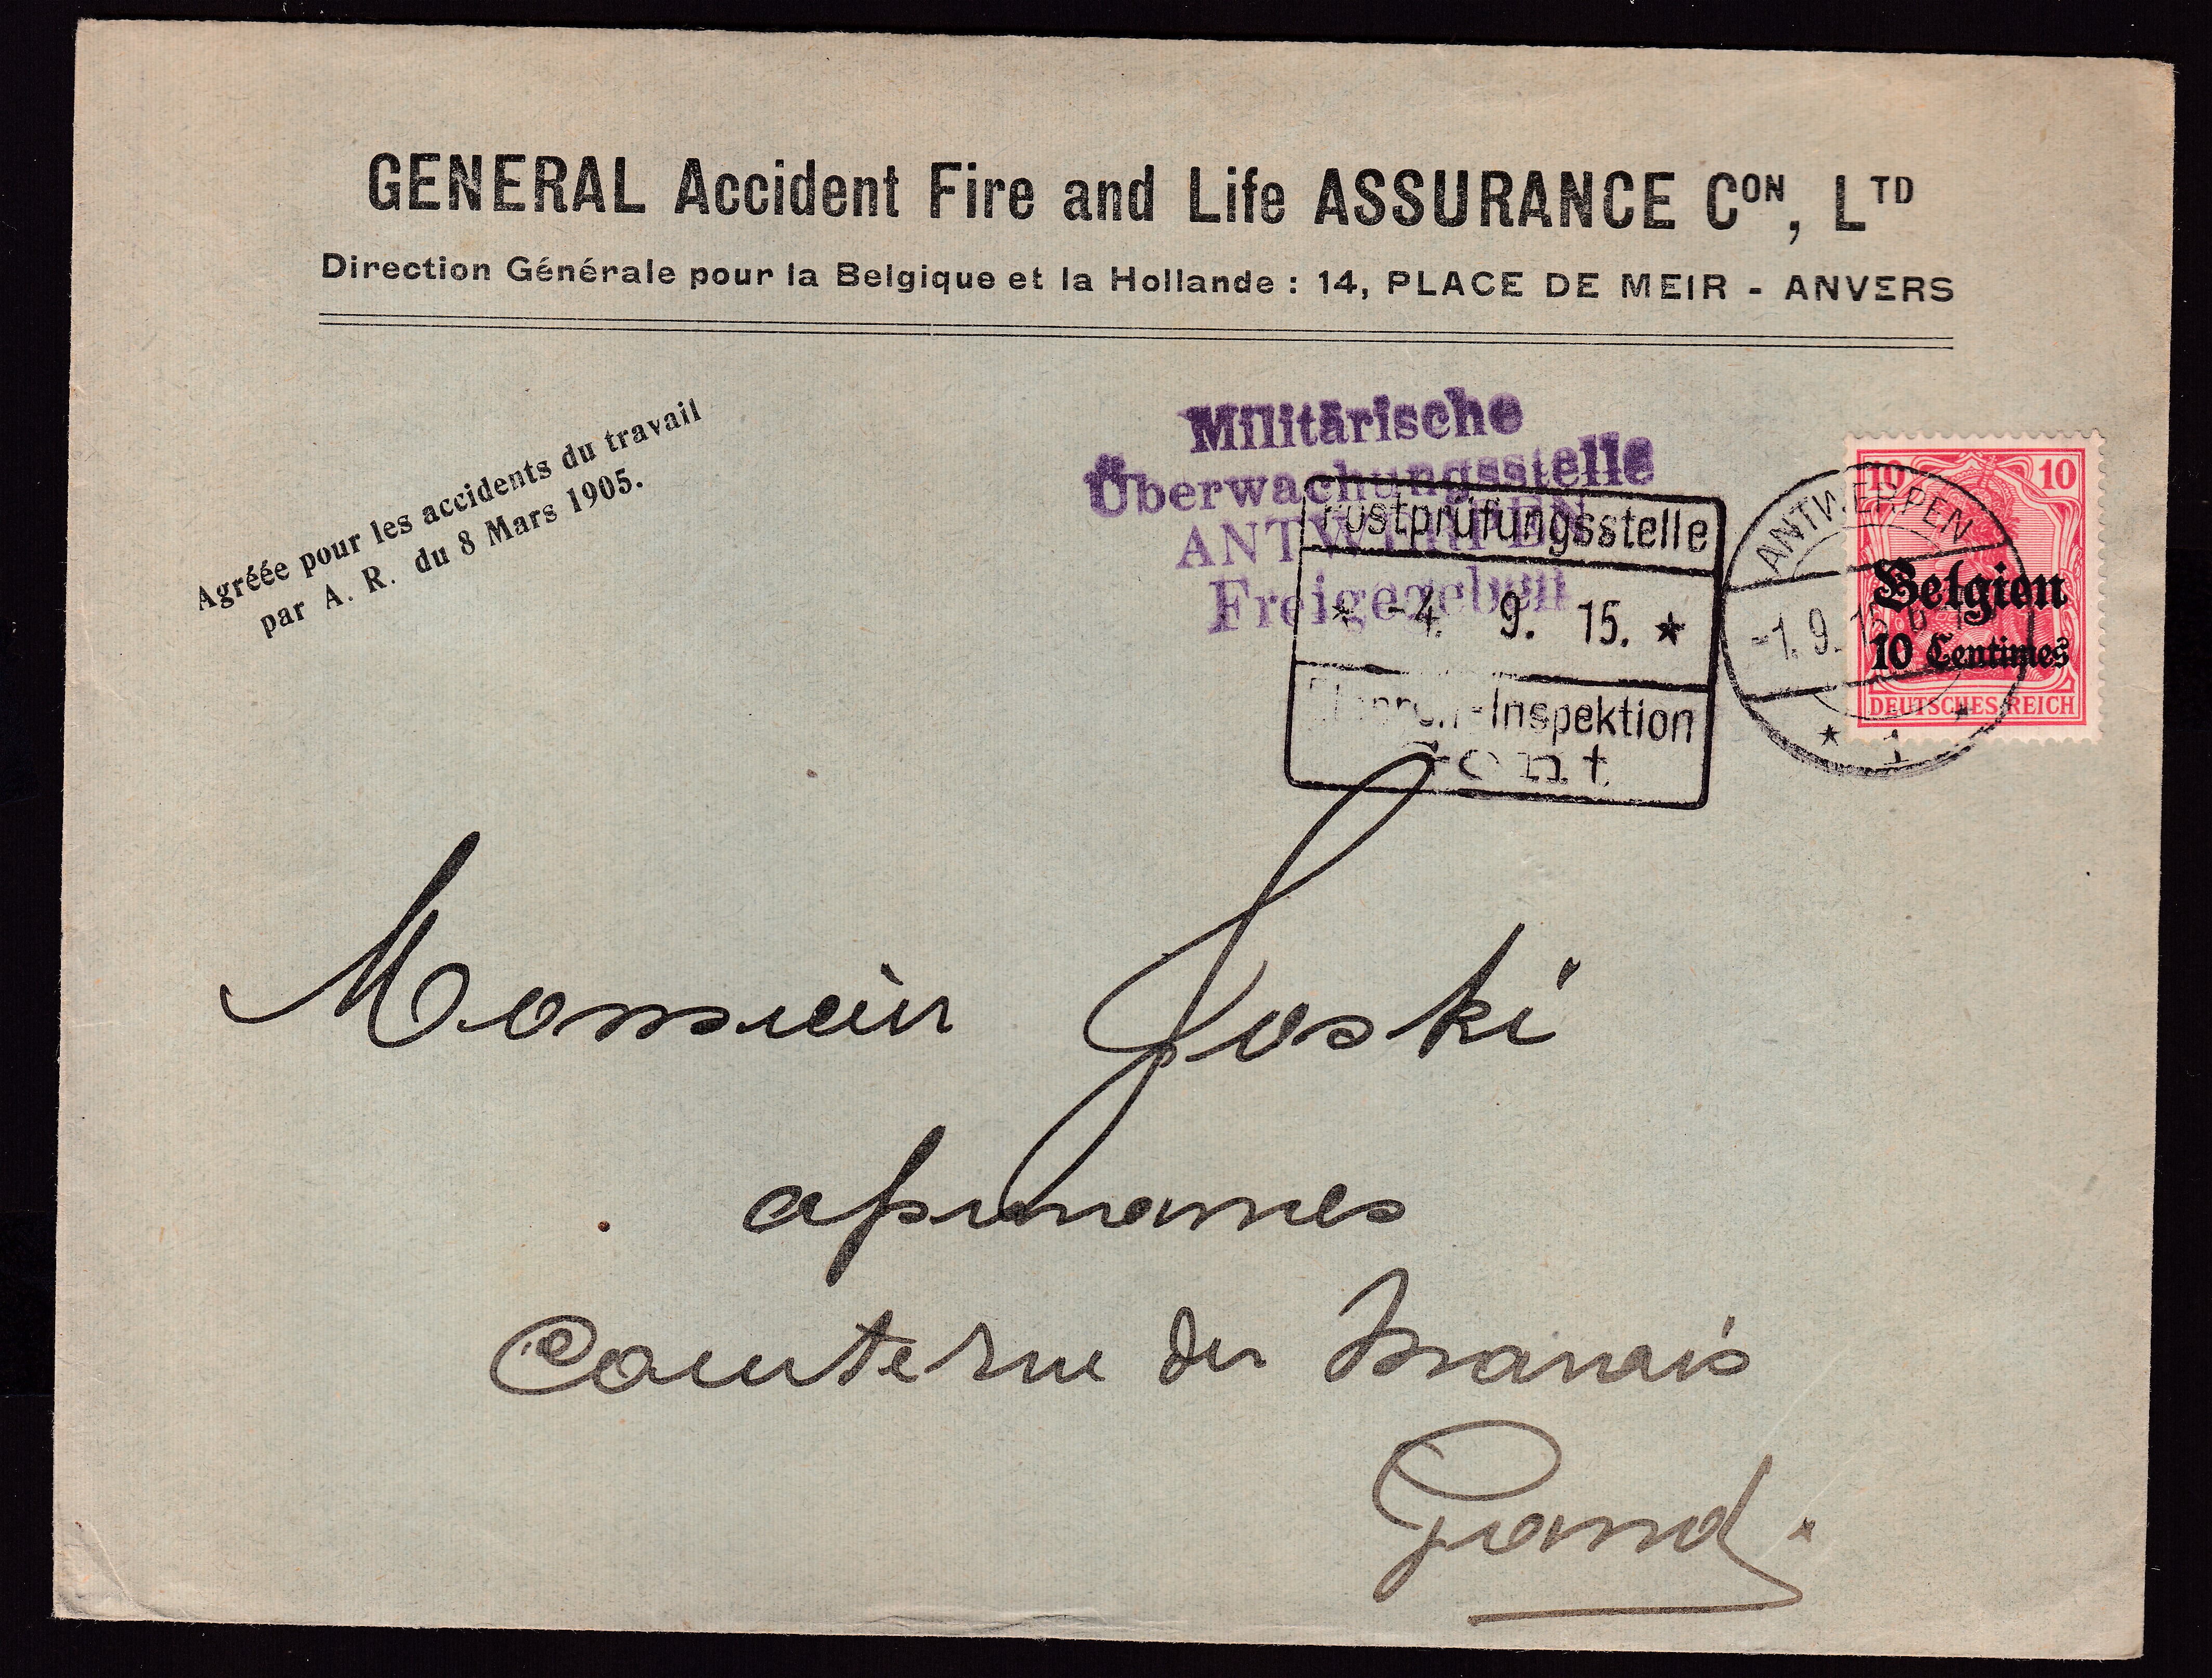 GENERAL Accident Fire and Life ASSURANCE Con, LTD
Direction Générale pour la Belgique et la Hollande : 14, PLACE DE MEIR - ANVERS
Agréée pour les accidents du travail
par A. R. du 8 Mars 1905.
Militärische
Überwachungsstelle
ANTWERPEN
Freigegeben
Postprüfungsstelle
* -4. 9. 15. *
Etappen-Inspektion
Gent
ANTWERPEN
-1. 9. 15
* 1 *
10 10
Belgien
10 Centimes
DEUTSCHES REICH
Monsieur Joski
Courte rue du Marais
Gand.